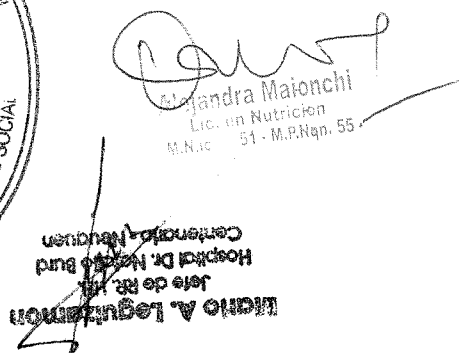 SOCIAL
Alejandra Maionchi
Lic. en Nutricion
M.N. 51 - M.P.Nqn. 55
Mario A. Leguizamon
Jefe de RR. HH.
Hospital Dr. Natalio Burd
Centenario - Neuquen